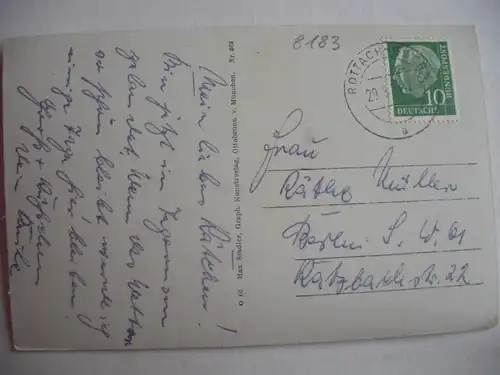 8183
ROTTACH
a
10
DEUTSCHE
BUNDESPOST
Frau
Käthe Müller
Berlin S.W. 61
Katzbachstr. 22
O 60 Max Sindler, Graph. Kunstverlag, Ottobrunn v. München. Nr.
Mein liebes Käthchen!
Bin jetzt in Tegernsee
Wenn das Wetter
so schön bleibt werde ich
einige Tage hier bleiben.
Gruß + Küßchen